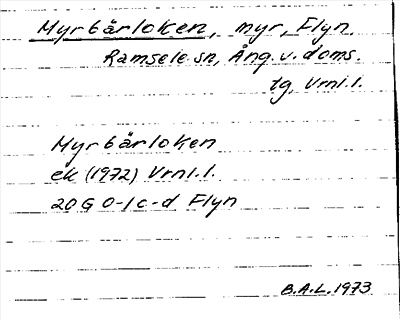 Myrbärloken, myr, Flyn.
Ramsele sn, Ång. v. doms.
tg, Vrnl.l.
Myrbärloken
ek (1972) Vrnl.l.
20 G 0-1 c-d Flyn
B.A.L. 1973